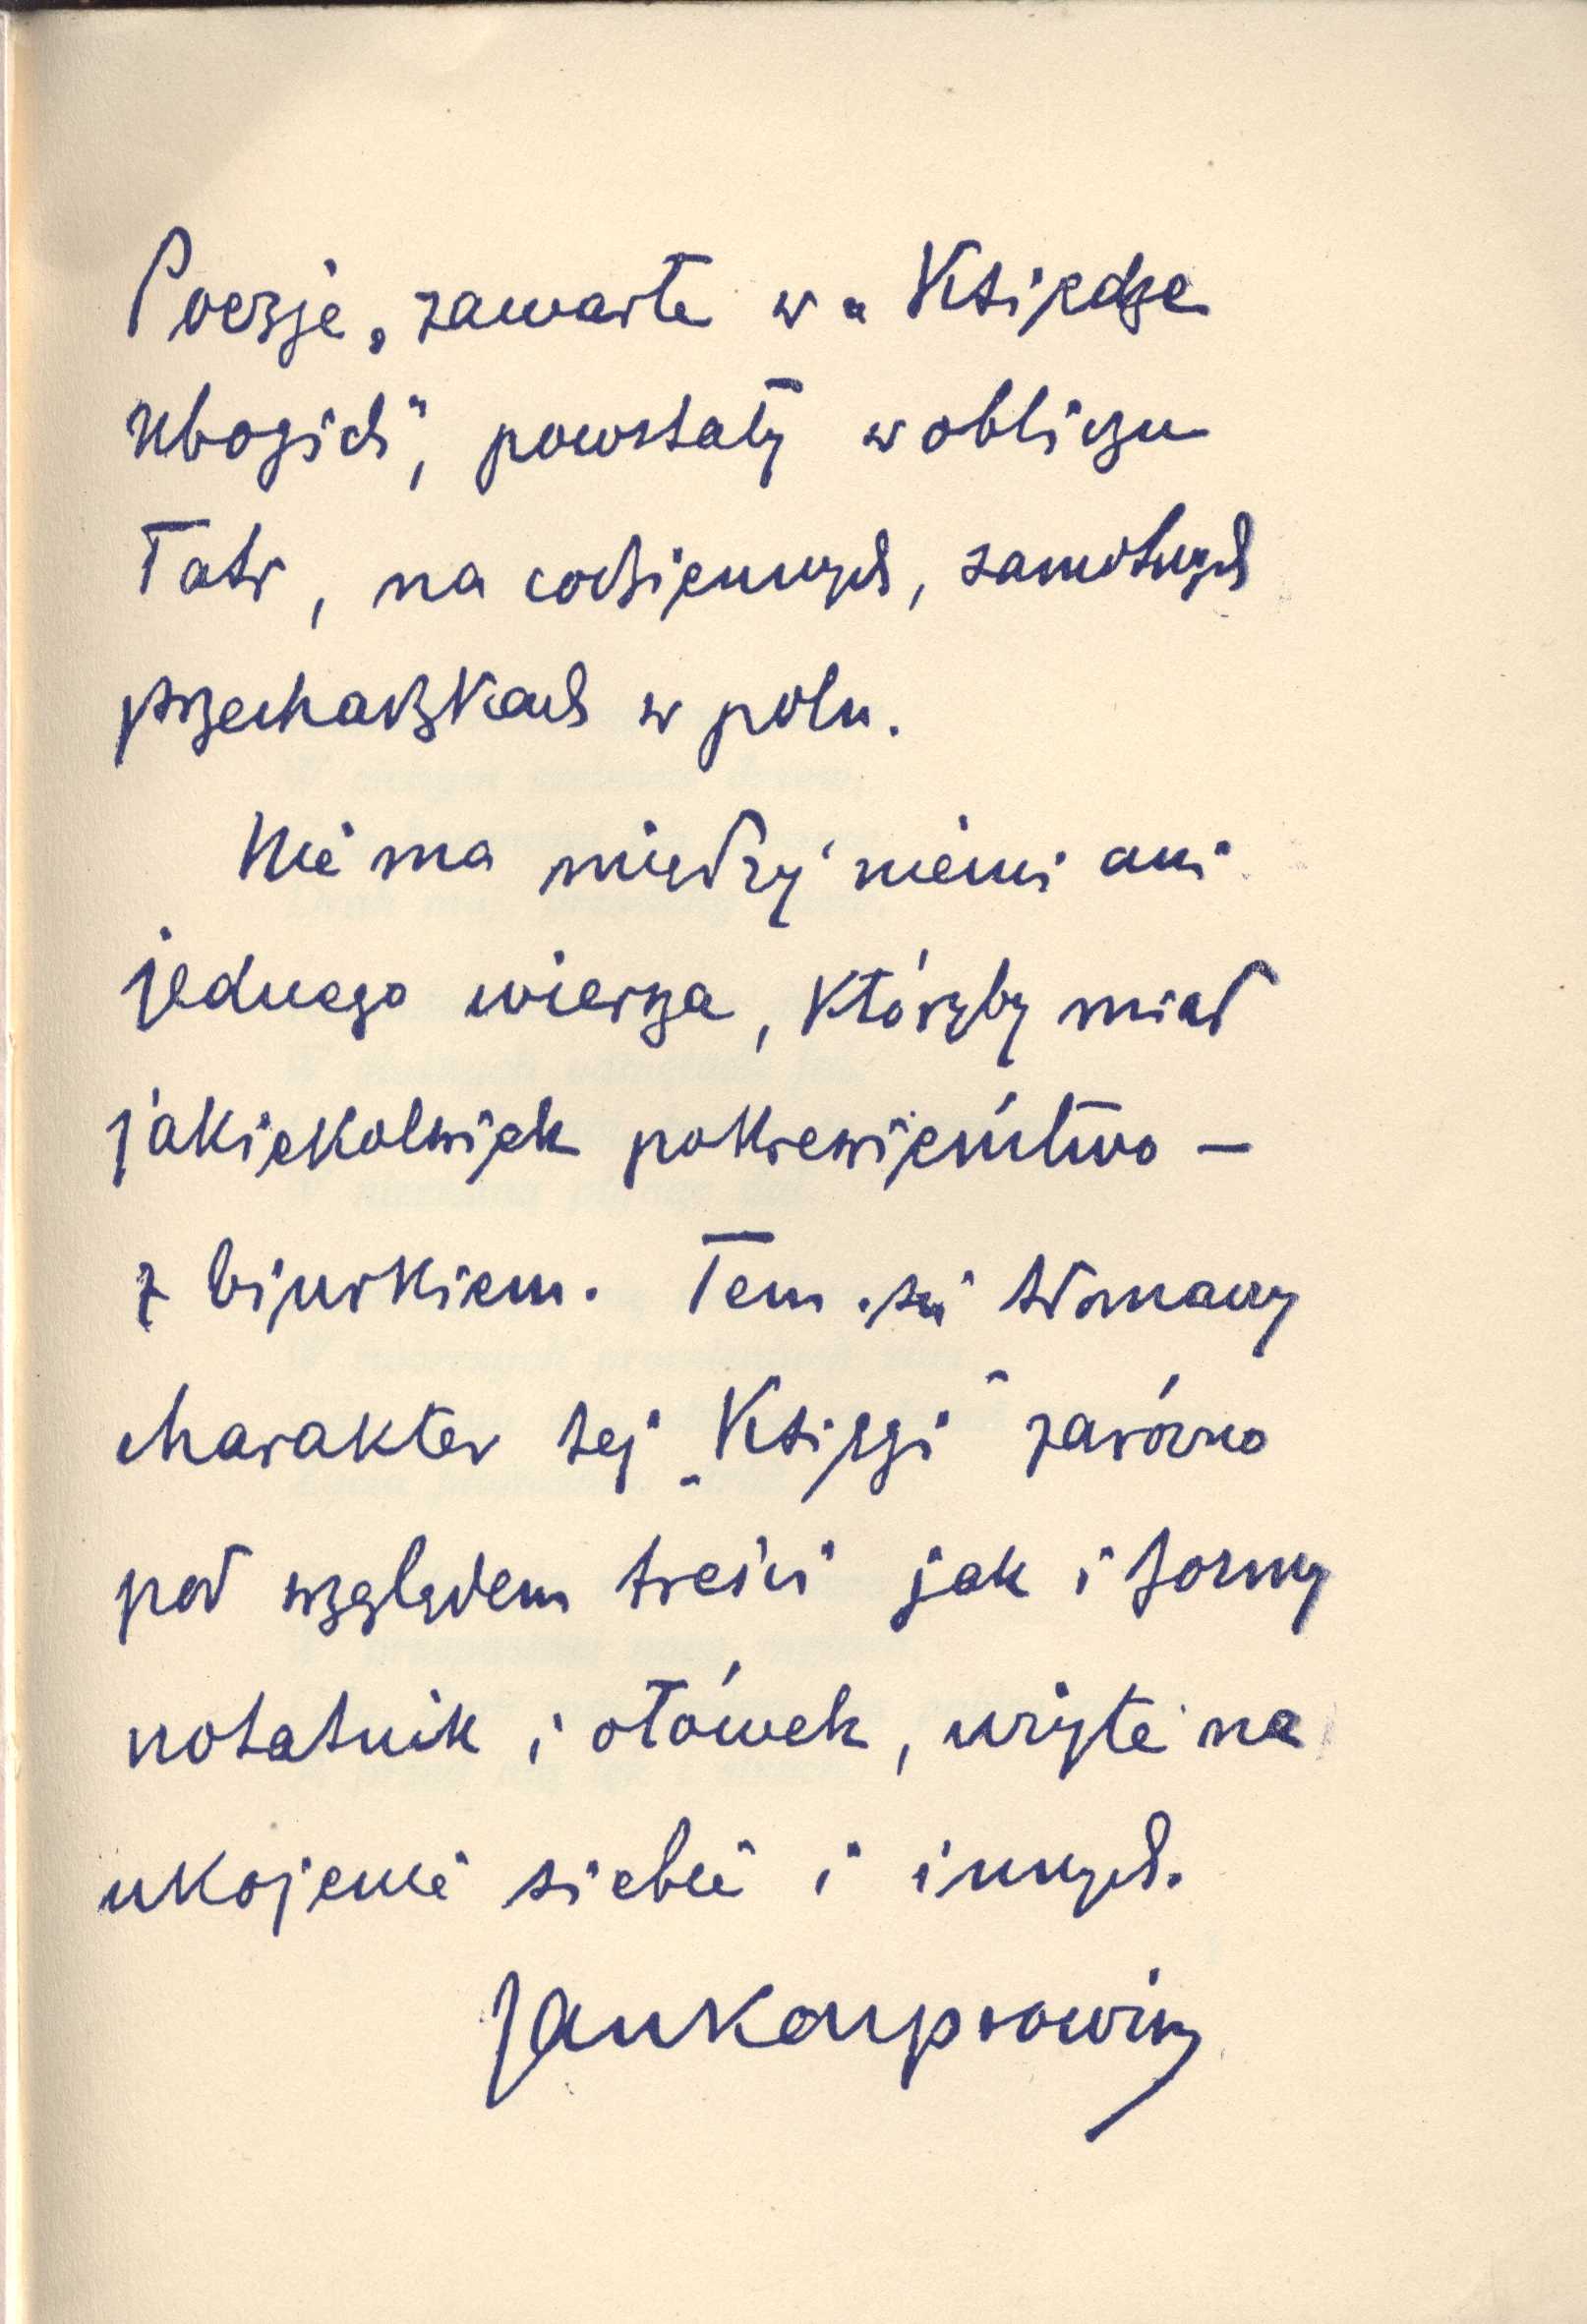 Poezje, zawarte w „Księdze
ubogich", powstały w obliczu
Tatr, na codziennych, samotnych
przechadzkach w polu.
Nie ma między niemi ani
jednego wiersza, któryby miał
jakiekolwiek pokrewieństwo —
z biurkiem. Tem się tłomaczy
charakter tej „Księgi" zarówno
pod względem treści jak i formy
notatnik i ołówek, użyte na
ukojenie siebie i innych.
Jan Kasprowicz